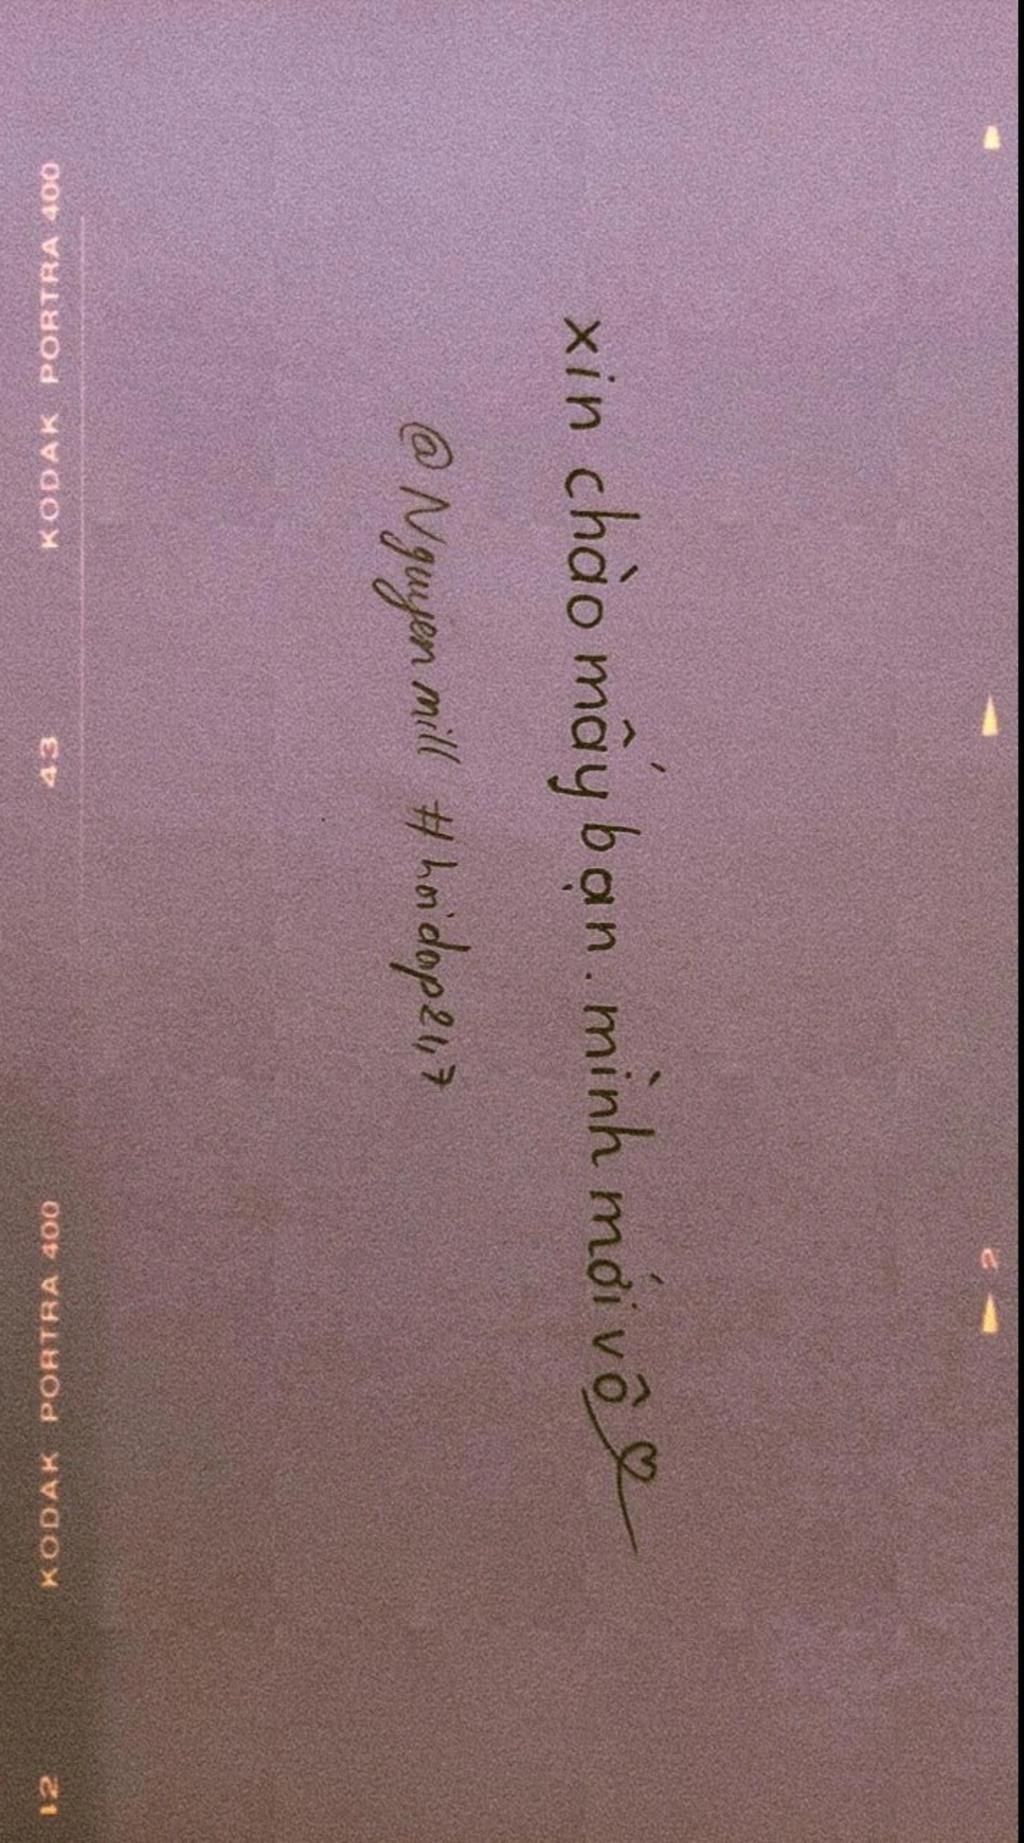 xin chào mấy bạn. mình mới vô
@Nguyenmill #hoidap247
KODAK PORTRA 400
43
KODAK PORTRA 400
12
2